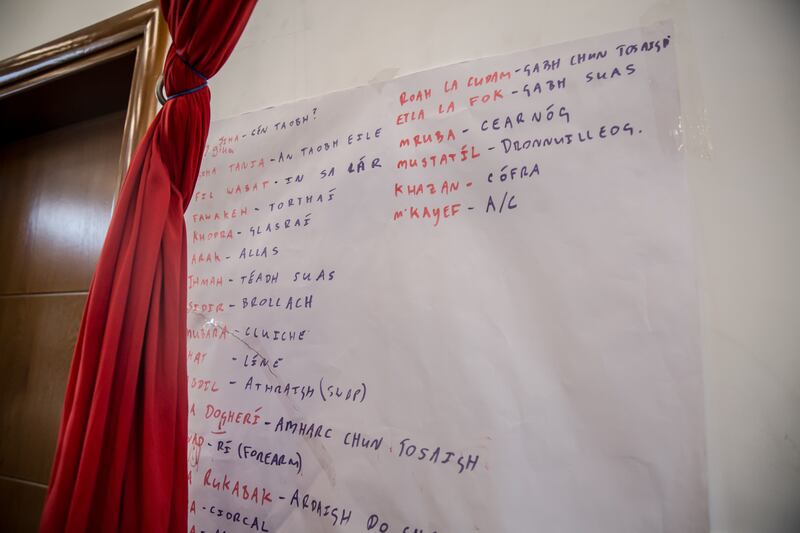 JIHA - CÉN TAOBH?
TANIA - AN TAOBH EILE
FIL WASAT - IN SA LÁR
FAWAKEH - TORTHAÍ
KHODRA - GLASRAÍ
ARAK - ALLAS
IHMAH - TÉADH SUAS
SIDIR - BROLLACH
MUBARA - CLUICHE
- LÍNE
- ATHRAIGH (SWAP)
DOGHERÍ - AMHARC CHUN TOSAIGH
- RÍ (FOREARM)
RUKABAK - ARDAIGH DO
- CIORCAL
ROAH LA CUDAM - GABH CHUN TOSAIGH
ETLA LA FOK - GABH SUAS
MRUBA - CEARNÓG
MUSTATÍL - DRONNUILLEOG.
KHAZAN - CÓFRA
M'KAYEF - A/C